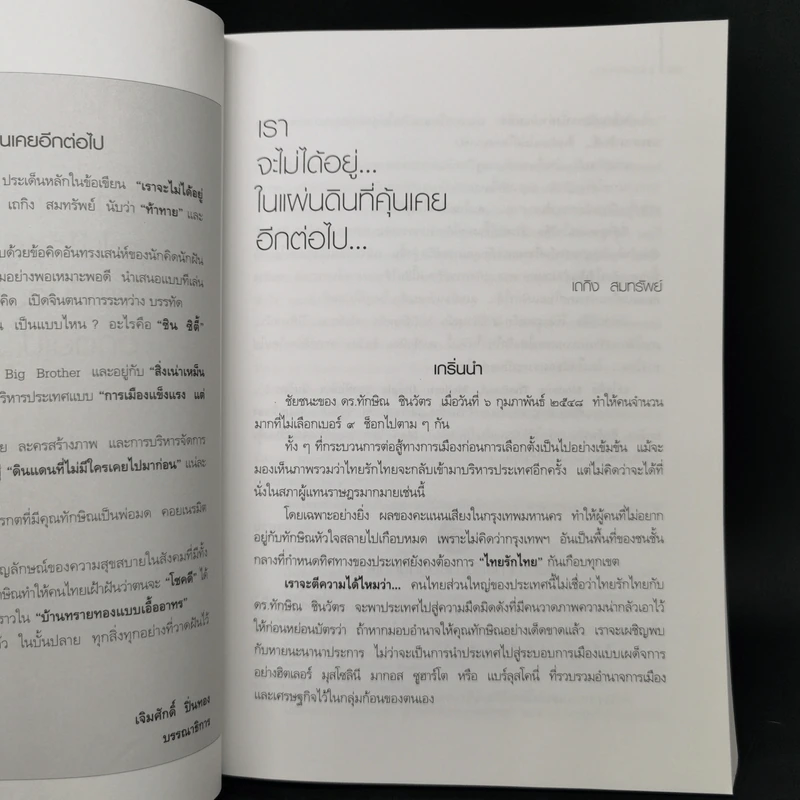 นเคยอีกต่อไป
ประเด็นหลักในข้อเขียน "เราจะไม่ได้อยู่
เถกิง สมทรัพย์ นับว่า "ท้าทาย" และ
บด้วยข้อคิดอันทรงเสน่ห์ของนักคิดนักฝัน
มอย่างพอเหมาะพอดี นำเสนอแบบทีเล่น
คิด เปิดจินตนาการระหว่าง บรรทัด
น เป็นแบบไหน ? อะไรคือ "ชิน ซิตี้"
Big Brother และอยู่กับ "สิ่งเน่าเหม็น
ริหารประเทศแบบ "การเมืองแข็งแรง แต่
ย ละครสร้างภาพ และการบริหารจัดการ
"ดินแดนที่ไม่มีใครเคยไปมาก่อน" แน่ละ
รกตที่มีคุณทักษิณเป็นพ่อมด คอยเนรมิต
ญลักษณ์ของความสุขสบายในสังคมที่มีทั้ง
ษิณทำให้คนไทยเฝ้าฝันว่าตนจะ "โชคดี" ได้
ราวใน "บ้านทรายทองแบบเอื้ออาทร"
ว ในบั้นปลาย ทุกสิ่งทุกอย่างที่วาดฝันไว้
เจิมศักดิ์ ปิ่นทอง
บรรณาธิการ
เรา
จะไม่ได้อยู่...
ในแผ่นดินที่คุ้นเคย
อีกต่อไป...
เถกิง สมทรัพย์
เกริ่นนำ
ชัยชนะของ ดร.ทักษิณ ชินวัตร เมื่อวันที่ ๖ กุมภาพันธ์ ๒๕๔๘ ทำให้คนจำนวน
มากที่ไม่เลือกเบอร์ ๙ ช็อกไปตาม ๆ กัน
ทั้ง ๆ ที่กระบวนการต่อสู้ทางการเมืองก่อนการเลือกตั้งเป็นไปอย่างเข้มข้น แม้จะ
มองเห็นภาพรวมว่าไทยรักไทยจะกลับเข้ามาบริหารประเทศอีกครั้ง แต่ไม่คิดว่าจะได้ที่
นั่งในสภาผู้แทนราษฎรมากมายเช่นนี้
โดยเฉพาะอย่างยิ่ง ผลของคะแนนเสียงในกรุงเทพมหานคร ทำให้ผู้คนที่ไม่อยาก
อยู่กับทักษิณหัวใจสลายไปเกือบหมด เพราะไม่คิดว่ากรุงเทพฯ อันเป็นพื้นที่ของชนชั้น
กลางที่กำหนดทิศทางของประเทศยังคงต้องการ "ไทยรักไทย" กันเกือบทุกเขต
เราจะตีความได้ไหมว่า... คนไทยส่วนใหญ่ของประเทศนี้ไม่เชื่อว่าไทยรักไทยกับ
ดร.ทักษิณ ชินวัตร จะพาประเทศไปสู่ความมืดมิดดังที่มีคนวาดภาพความน่ากลัวเอาไว้
ให้ก่อนหย่อนบัตรว่า ถ้าหากมอบอำนาจให้คุณทักษิณอย่างเด็ดขาดแล้ว เราจะเผชิญพบ
กับหายนะนานาประการ ไม่ว่าจะเป็นการนำประเทศไปสู่ระบอบการเมืองแบบเผด็จการ
อย่างฮิตเลอร์ มุสโสลินี มากอส ซูฮาร์โต หรือ แบร์ลุสโคนี่ ที่รวบรวมอำนาจการเมือง
และเศรษฐกิจไว้ในกลุ่มก้อนของตนเอง